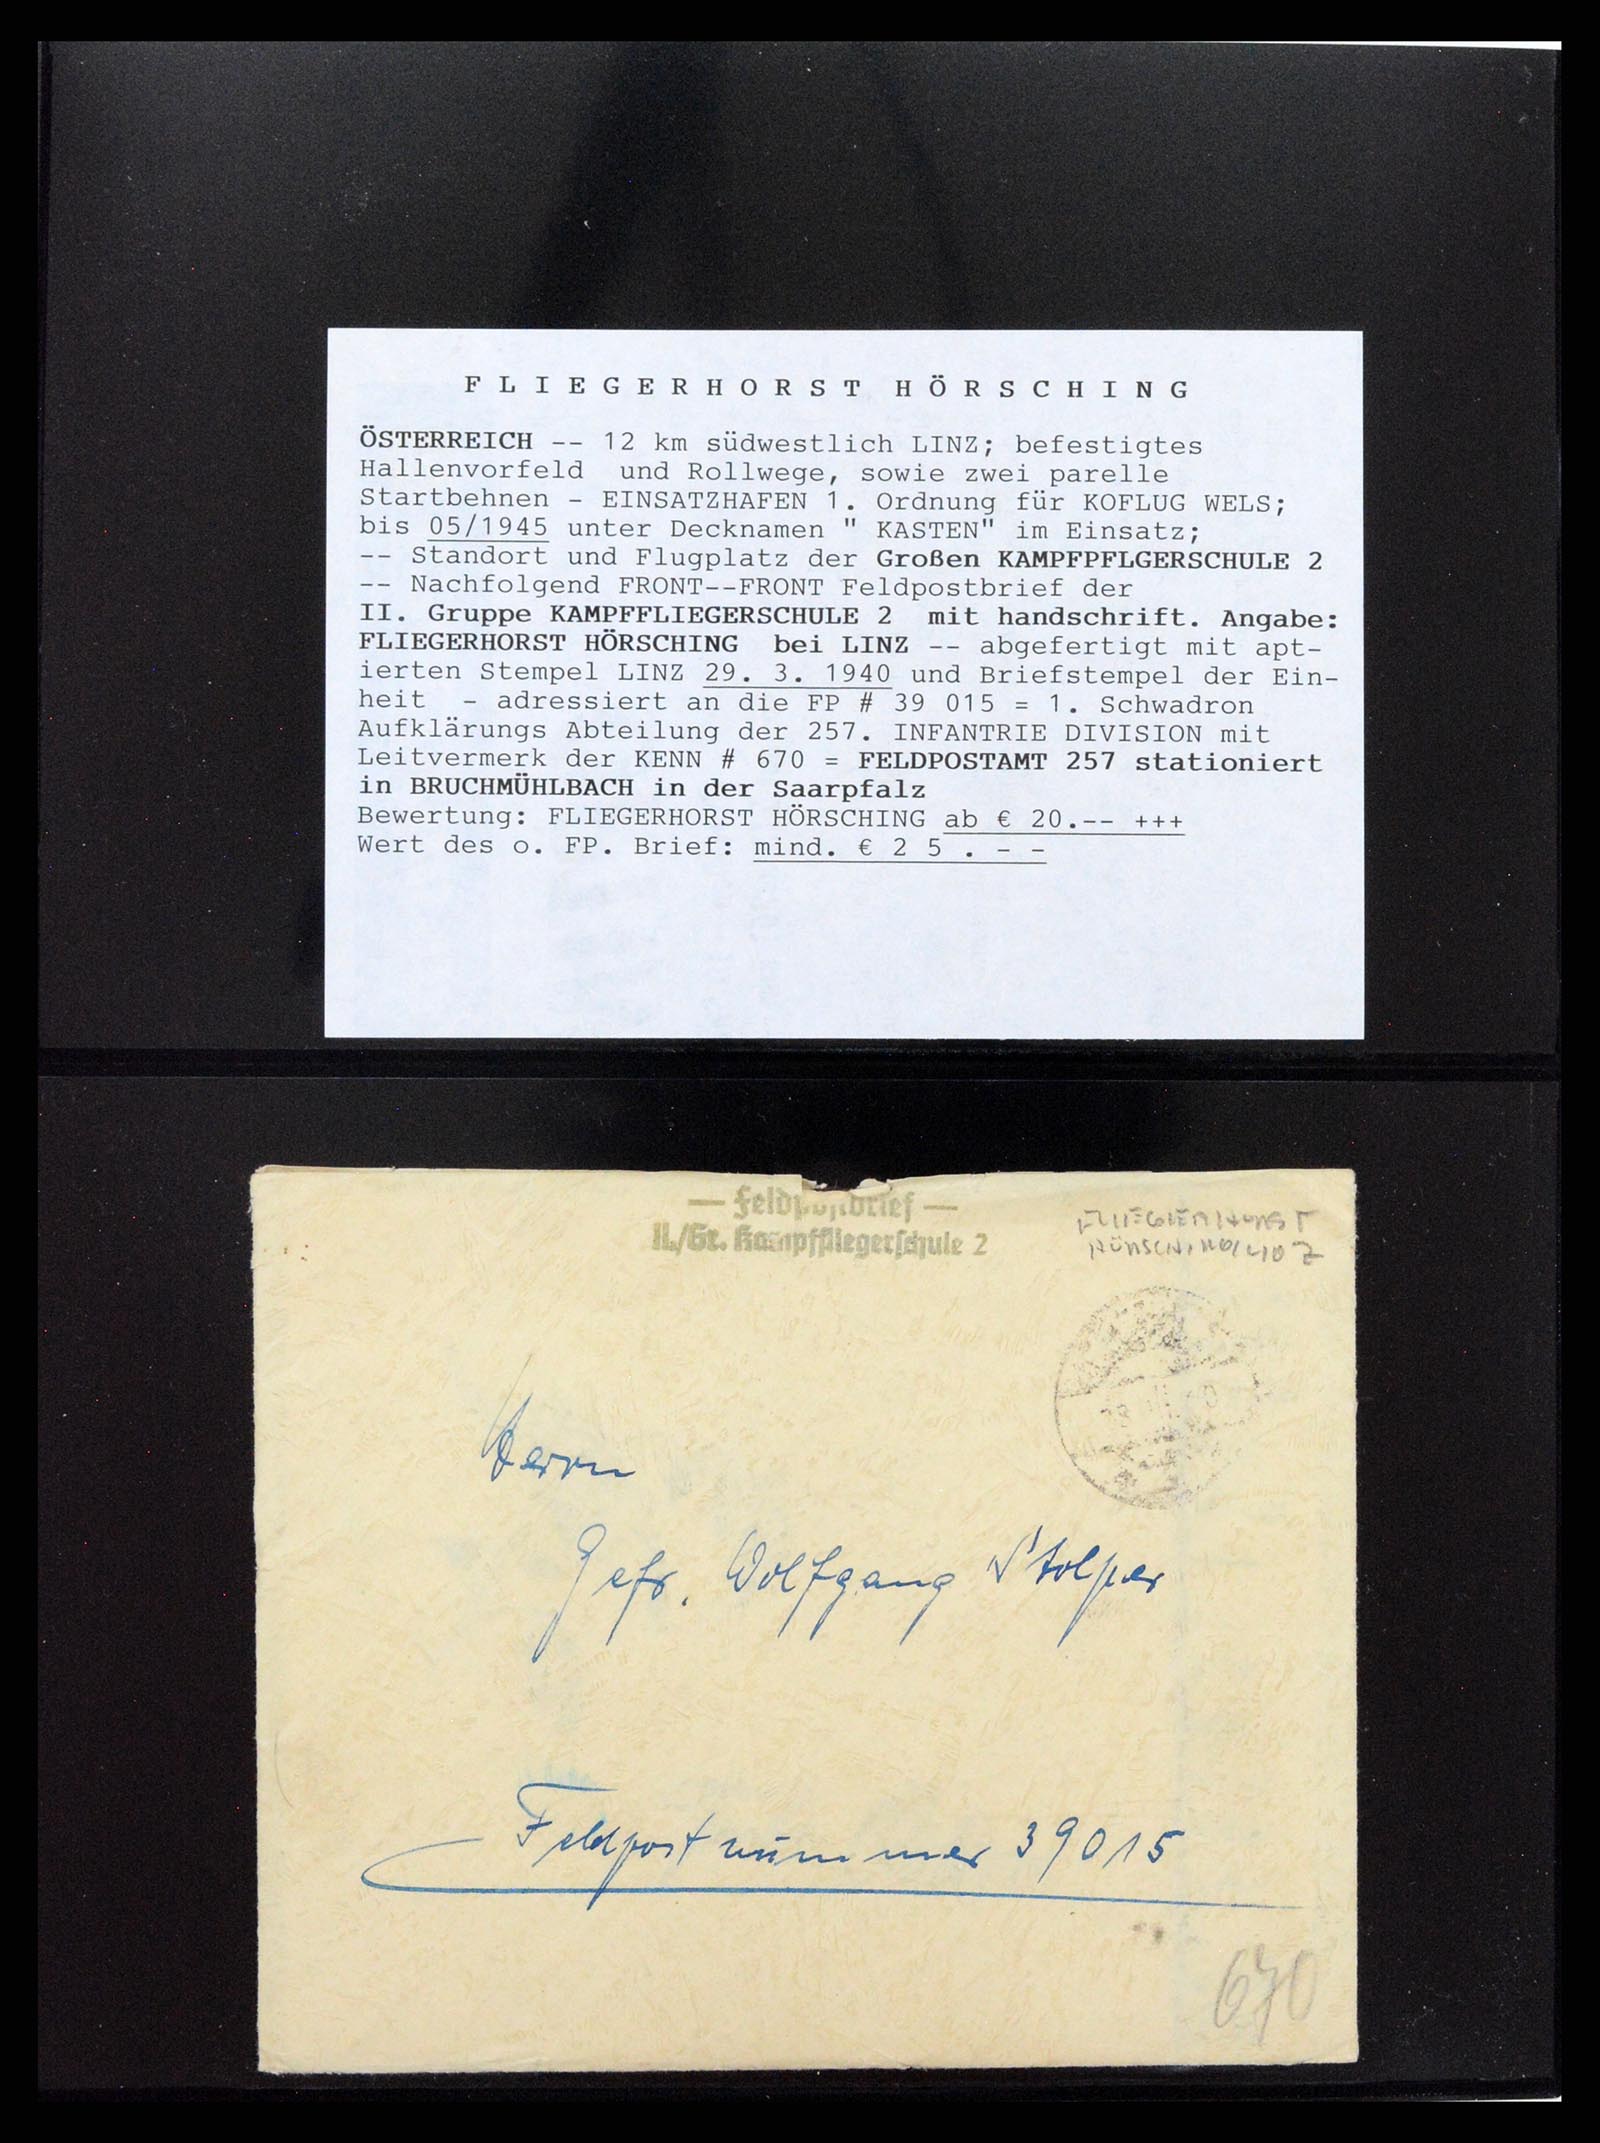 FLIEGERHORST HÖRSCHING
ÖSTERREICH -- 12 km südwestlich LINZ; befestigtes
Hallenvorfeld und Rollwege, sowie zwei parelle
Startbehnen - EINSATZHAFEN 1. Ordnung für KOFLUG WELS;
bis 05/1945 unter Decknamen " KASTEN" im Einsatz;
-- Standort und Flugplatz der Großen KAMPFPFLGERSCHULE 2
-- Nachfolgend FRONT--FRONT Feldpostbrief der
II. Gruppe KAMPFFLIEGERSCHULE 2 mit handschrift. Angabe:
FLIEGERHORST HÖRSCHING bei LINZ -- abgefertigt mit apt-
ierten Stempel LINZ 29. 3. 1940 und Briefstempel der Ein-
heit - adressiert an die FP # 39 015 = 1. Schwadron
Aufklärungs Abteilung der 257. INFANTRIE DIVISION mit
Leitvermerk der KENN # 670 = FELDPOSTAMT 257 stationiert
in BRUCHMÜHLBACH in der Saarpfalz
Bewertung: FLIEGERHORST HÖRSCHING ab € 20.-- +++
Wert des o. FP. Brief: mind. € 2 5 . - -
— Feldpostbrief —
II./Gr. Kampffliegerschule 2
FLIEGERHORST
HÖRSCHING/LINZ
Herrn
Gefr. Wolfgang Stolper
Feldpostnummer 39015
670